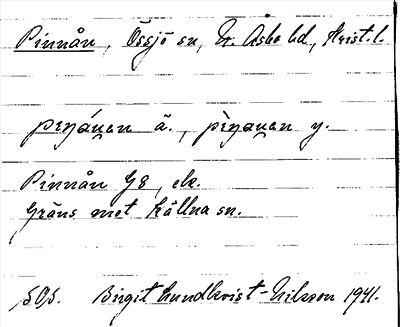 Pinnån, Össjö sn, N. Åsbo hd, Krist. l.
pìnáu̯an ä., pìnau̯an y.
Pinnån GE, ek.
Gräns mot Källna sn.
SOS. Birgit Lundkvist-Nilsson 1941.